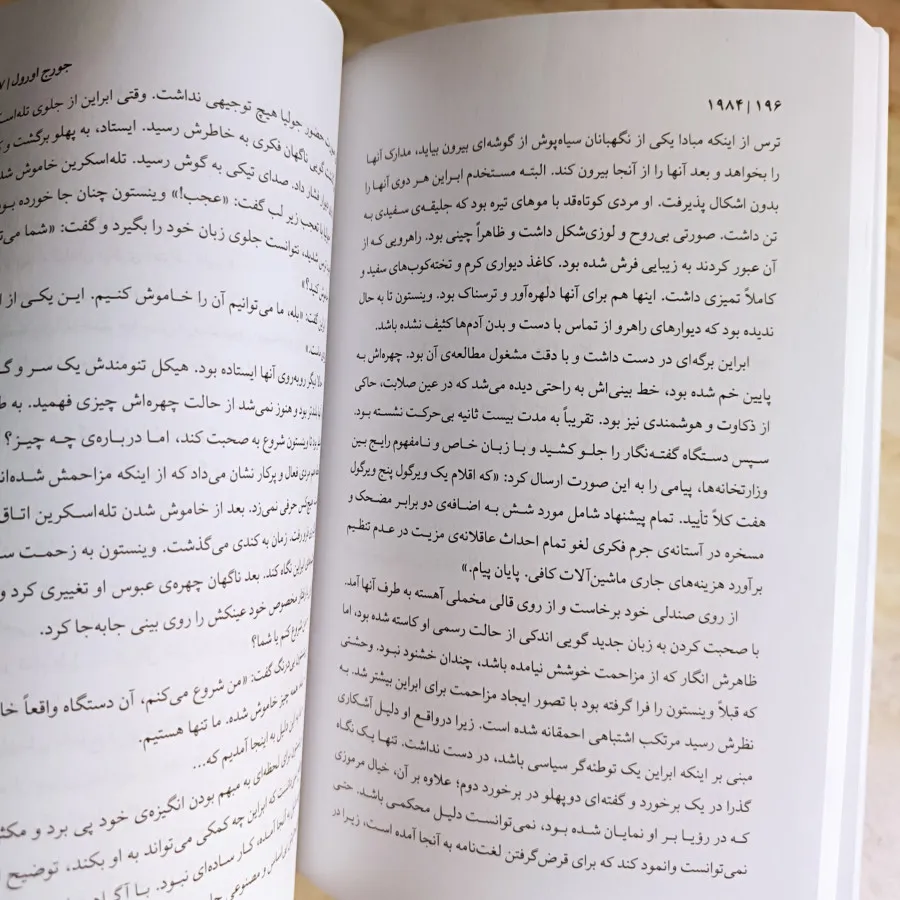 ۱۹۶ | ۱۹۸۴
ترس از اینکه مبادا یکی از نگهبانان سیاه‌پوش از گوشه‌ای بیرون بیاید، مدارک آنها
را بخواهد و بعد آنها را از آنجا بیرون کند. البته مستخدم ابراین هر دوی آنها را
بدون اشکال پذیرفت. او مردی کوتاه‌قد با موهای تیره بود که جلیقه‌ی سفیدی به
تن داشت. صورتی بی‌روح و لوزی‌شکل داشت و ظاهراً چینی بود. راهرویی که از
آن عبور کردند به زیبایی فرش شده بود. کاغذ دیواری کرم و تخته‌کوب‌های سفید و
کاملاً تمیزی داشت. اینها هم برای آنها دلهره‌آور و ترسناک بود. وینستون تا به حال
ندیده بود که دیوارهای راهرو از تماس با دست و بدن آدم‌ها کثیف نشده باشد.
ابراین برگه‌ای در دست داشت و با دقت مشغول مطالعه‌ی آن بود. چهره‌اش به
پایین خم شده بود، خط بینی‌اش به راحتی دیده می‌شد که در عین صلابت، حاکی
از ذکاوت و هوشمندی نیز بود. تقریباً به مدت بیست ثانیه بی‌حرکت نشسته بود.
سپس دستگاه گفته‌نگار را جلو کشید و با زبان خاص و نامفهوم رایج بین
وزارتخانه‌ها، پیامی را به این صورت ارسال کرد: «که اقلام یک ویرگول پنج ویرگول
هفت کلاً تأیید. تمام پیشنهاد شامل مورد شش به اضافه‌ی دو برابر مضحک و
مسخره در آستانه‌ی جرم فکری لغو تمام احداث عاقلانه‌ی مزیت در عدم تنظیم
برآورد هزینه‌های جاری ماشین‌آلات کافی. پایان پیام.»
از روی صندلی خود برخاست و از روی قالی مخملی آهسته به طرف آنها آمد.
با صحبت کردن به زبان جدید گویی اندکی از حالت رسمی او کاسته شده بود، اما
ظاهرش انگار که از مزاحمت خوشش نیامده باشد، چندان خشنود نبود. وحشتی
که قبلاً وینستون را فرا گرفته بود با تصور ایجاد مزاحمت برای ابراین بیشتر شد. به
نظرش رسید مرتکب اشتباهی احمقانه شده است. زیرا درواقع او دلیل آشکاری
مبنی بر اینکه ابراین یک توطئه‌گر سیاسی باشد، در دست نداشت. تنها یک نگاه
گذرا در یک برخورد و گفته‌ای دوپهلو در برخورد دوم؛ علاوه بر آن، خیال مرموزی
که در رؤیا بر او نمایان شده بود، نمی‌توانست دلیل محکمی باشد. حتی
نمی‌توانست وانمود کند که برای قرض‌گرفتن لغت‌نامه به آنجا آمده است، زیرا در
جورج اورول |
حضور جولیا هیچ توجیهی نداشت. وقتی ابراین از جلوی تله‌اس
گویی ناگهان فکری به خاطرش رسید. ایستاد، به پهلو برگشت و
فشار داد. صدای تیکی به گوش رسید. تله‌اسکرین خاموش شد
تعجب زیر لب گفت: «عجب!» وینستون چنان جا خورده بود
نتوانست جلوی زبان خود را بگیرد و گفت: «شما می‌
گفت: «بله، ما می‌توانیم آن را خاموش کنیم. این یکی از
روبه‌روی آنها ایستاده بود. هیکل تنومندش یک سر و
بود و هنوز نمی‌شد از حالت چهره‌اش چیزی فهمید. به
تا وینستون شروع به صحبت کند، اما درباره‌ی چه چیز؟
فعال و پرکار نشان می‌داد که از اینکه مزاحمش شده‌اند
حرفی نمی‌زد. بعد از خاموش شدن تله‌اسکرین اتاق
زمان به کندی می‌گذشت. وینستون به زحمت
ابراین نگاه کند. بعد ناگهان چهره‌ی عبوس او تغییری کرد و
مخصوص خود عینکش را روی بینی جابه‌جا کرد.
شروع کنم یا شما؟
گفت: «من شروع می‌کنم، آن دستگاه واقعاً
همه چیز خاموش شده. ما تنها هستیم.
دلیل به اینجا آمدیم که...
برای لحظه‌ای به مبهم بودن انگیزه‌ی خود پی برد و
که ابراین چه کمکی می‌تواند به او بکند، توضیح
به اینجا آمده، کار ساده‌ای نبود. با
و مصنوعی